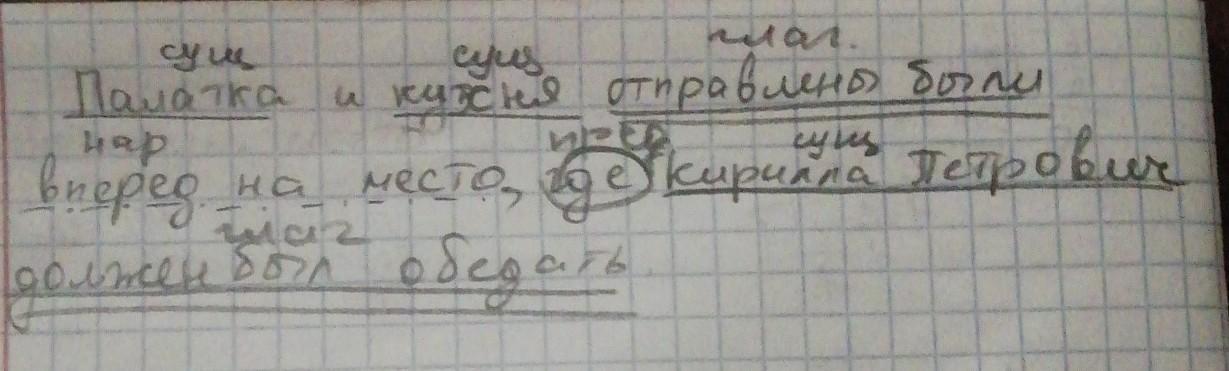 сущ сущ глаг.
Палатка и кухня отправлены были
нар пред сущ
вперед на место, где Кирилла Петрович
глаг
должен был обедать